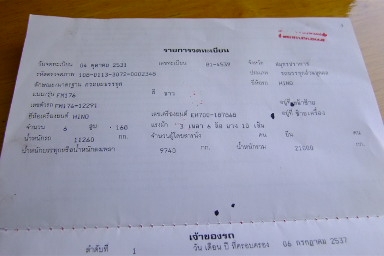 รายการจดทะเบียน
วันจดทะเบียน 06 ตุลาคม 2531 เลขทะเบียน 81-4539 จังหวัด
รหัสตรวจสภาพ ประเภท
ลักษณะมาตรฐาน ยี่ห้อรถ HINO
แบบ/รุ่น FM176 สี ขาว
เลขตัวรถ FM176-12291 อยู่ที่
ยี่ห้อเครื่องยนต์ HINO เลขเครื่องยนต์ อยู่ที่
จำนวน 6 สูบ 160 แรงม้า 3 เพลา 6 ล้อ ยาง 10 เส้น
น้ำหนักรถ 11260 กก. จำนวนผู้โดยสารนั่ง คน ยืน คน
น้ำหนักบรรทุกหรือน้ำหนักลงเพลา 9740 กก. น้ำหนักรวม 21000 กก.
เจ้าของรถ
ลำดับที่ 1 วัน เดือน ปี ที่ครอบครอง 06 กรกฎาคม 2537